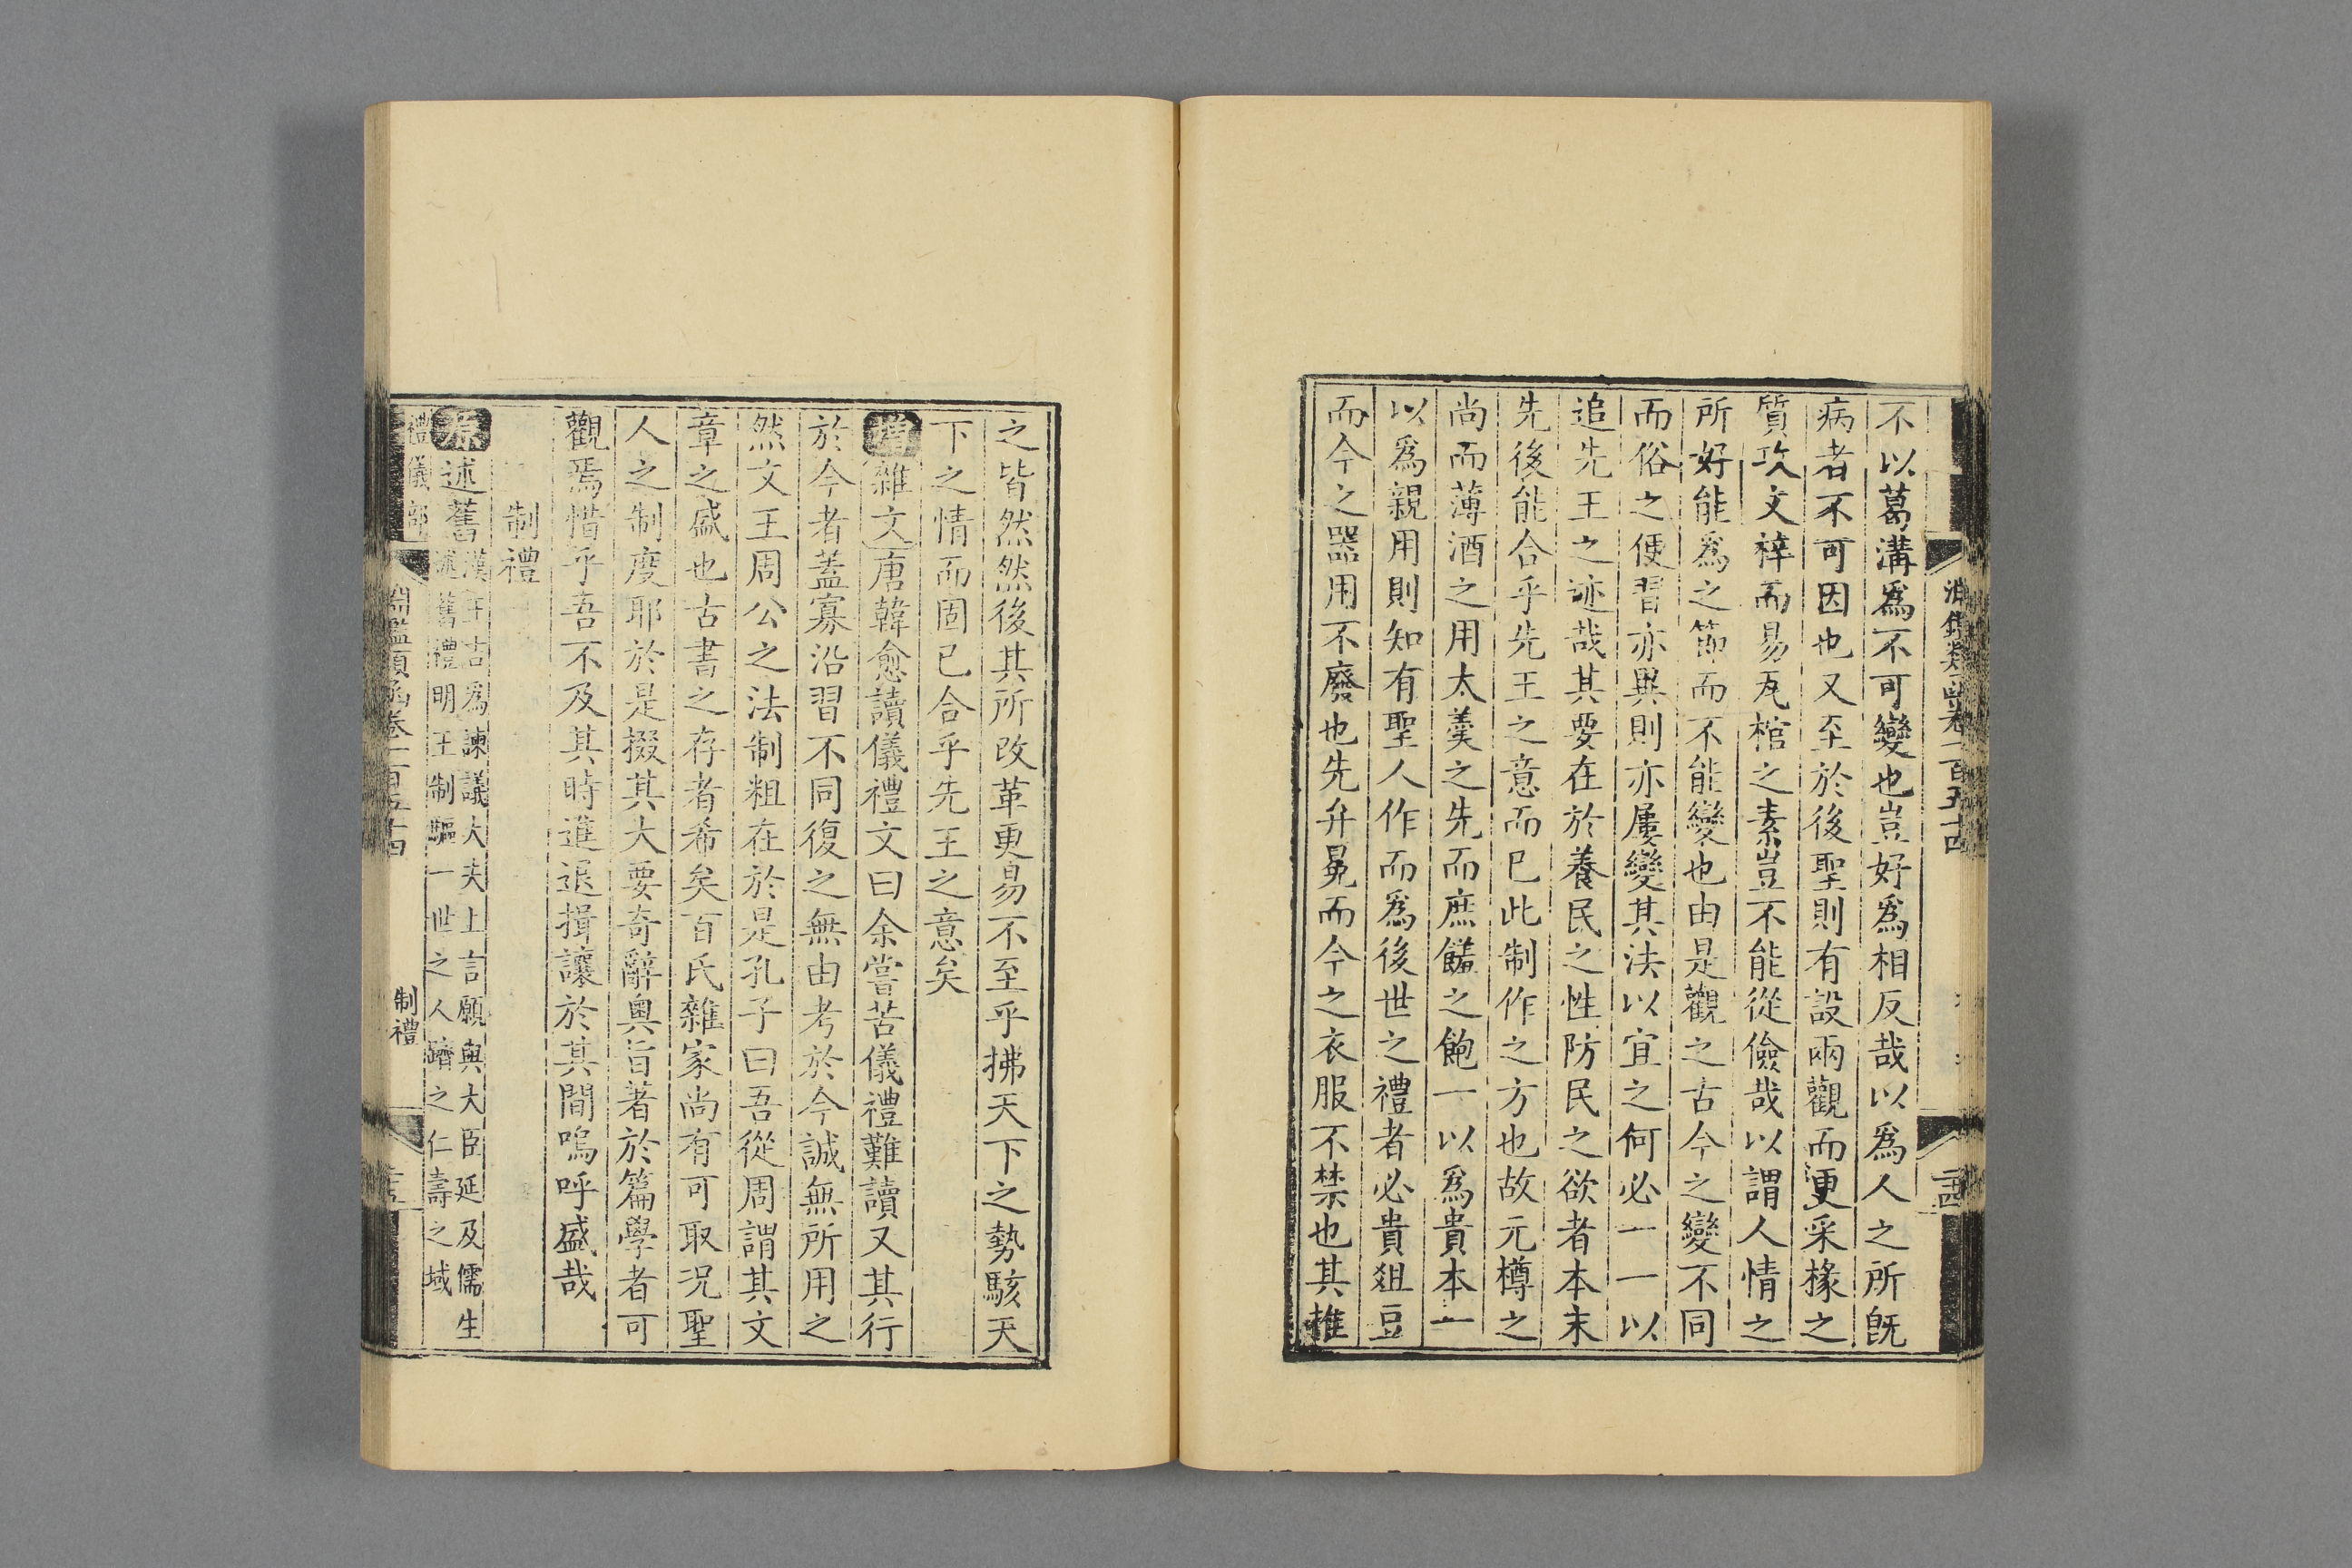 不以葛溝爲不可變也豈好爲相反哉以爲人之所旣
病者不可因也又至於後聖則有設兩觀而更采椽之
質攻文梓而易瓦棺之素豈不能從儉哉以謂人情之
所好能爲之節而不能變也由是觀之古今之變不同
而俗之便習亦異則亦屢變其法以宜之何必一一以
追先王之迹哉其要在於養民之性防民之欲者本末
先後能合乎先王之意而已此制作之方也故元樽之
尚而薄酒之用太羹之先而庶饈之飽一以爲貴本一
以爲親用則知有聖人作而爲後世之禮者必貴俎豆
而今之器用不廢也先弁冕而今之衣服不禁也其推
之皆然然後其所改革更易不至乎拂天下之勢駭天
下之情而固已合乎先王之意矣
增雜文唐韓愈讀儀禮文曰余嘗苦儀禮難讀又其行
於今者蓋寡沿習不同復之無由考於今誠無所用之
然文王周公之法制粗在於是孔子曰吾從周謂其文
章之盛也古書之存者希矣百氏雜家尚有可取况聖
人之制度耶於是掇其大要奇辭奧旨著於篇學者可
觀焉惜乎吾不及其時進退揖讓於其間嗚呼盛哉
制禮
原述舊漢王吉爲諫議大夫上言願與大臣延及儒生
述舊禮明王制驅一世之人躋之仁壽之域
禮儀部
淵鑑類函卷一百五十四
制禮